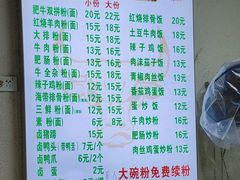 小份 大份
肥牛双拼粉(面) 20元 22元
红烧羊肉粉(面) 16元 18元
大排粉(面) 13元 15元
牛肉粉(面) 13元 15元
肥肠粉(面) 13元 15元
牛全杂粉(面) 13元 15元
辣子鸡粉(面) 12元 15元
海带排骨粉(面) 12元 15元
三鲜粉(面) 12元
素粉(面) 8元
卤猪蹄 15元
卤鸭头 7元/2个
卤鸭爪 7元/
卤蛋 2元
红烧排骨饭 20元
土豆牛肉饭
辣子鸡饭
肉沫茄子饭
青椒肉丝饭
番茄鸡蛋饭
蛋炒饭 12元
牛肉炒粉
肥肠炒粉 16元
肉丝鸡蛋炒粉 13元
大碗粉免费续粉